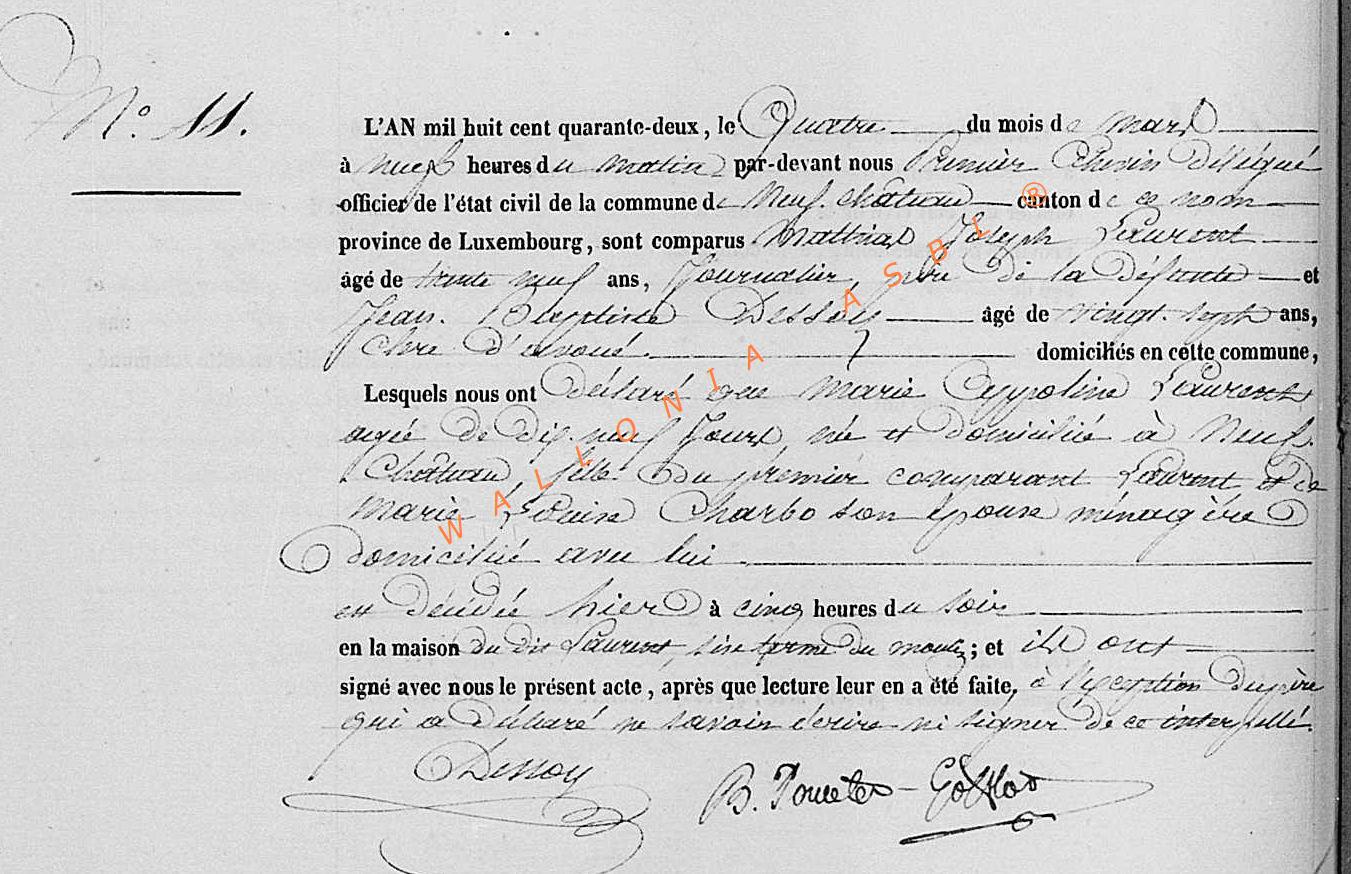 N.° 11.
L'AN mil huit cent quarante-deux, le Quatre du mois de mars
à neuf heures du matin par-devant nous Premier Echevin délégué
officier de l'état civil de la commune de Neufchateau canton de ce nom
province de Luxembourg, sont comparus Mathias Joseph Laurent
âgé de trente neuf ans, Journalier, père de la défunte et
Jean. Baptiste Dessoy âgé de vingt. sept ans,
clerc d'avoué. domiciliés en cette commune,
Lesquels nous ont déclaré que Marie Appoline Laurent
agée de dix-neuf Jours, née et domiciliée à Neuf
Chateau, fille du premier comparant Laurent et de
Marie Louise Charbo son épouse ménagère
domiciliée avec lui
est décédée hier à cinq heures du soir
en la maison du dit Laurent, sise terme du moulin; et ils ont
signé avec nous le présent acte, après que lecture leur en a été faite, à l'exception du père
qui a déclaré ne savoir écrire ni signer de ce interpellé.
Dessoy B. Poncelet
WALLONIA ASBL ®